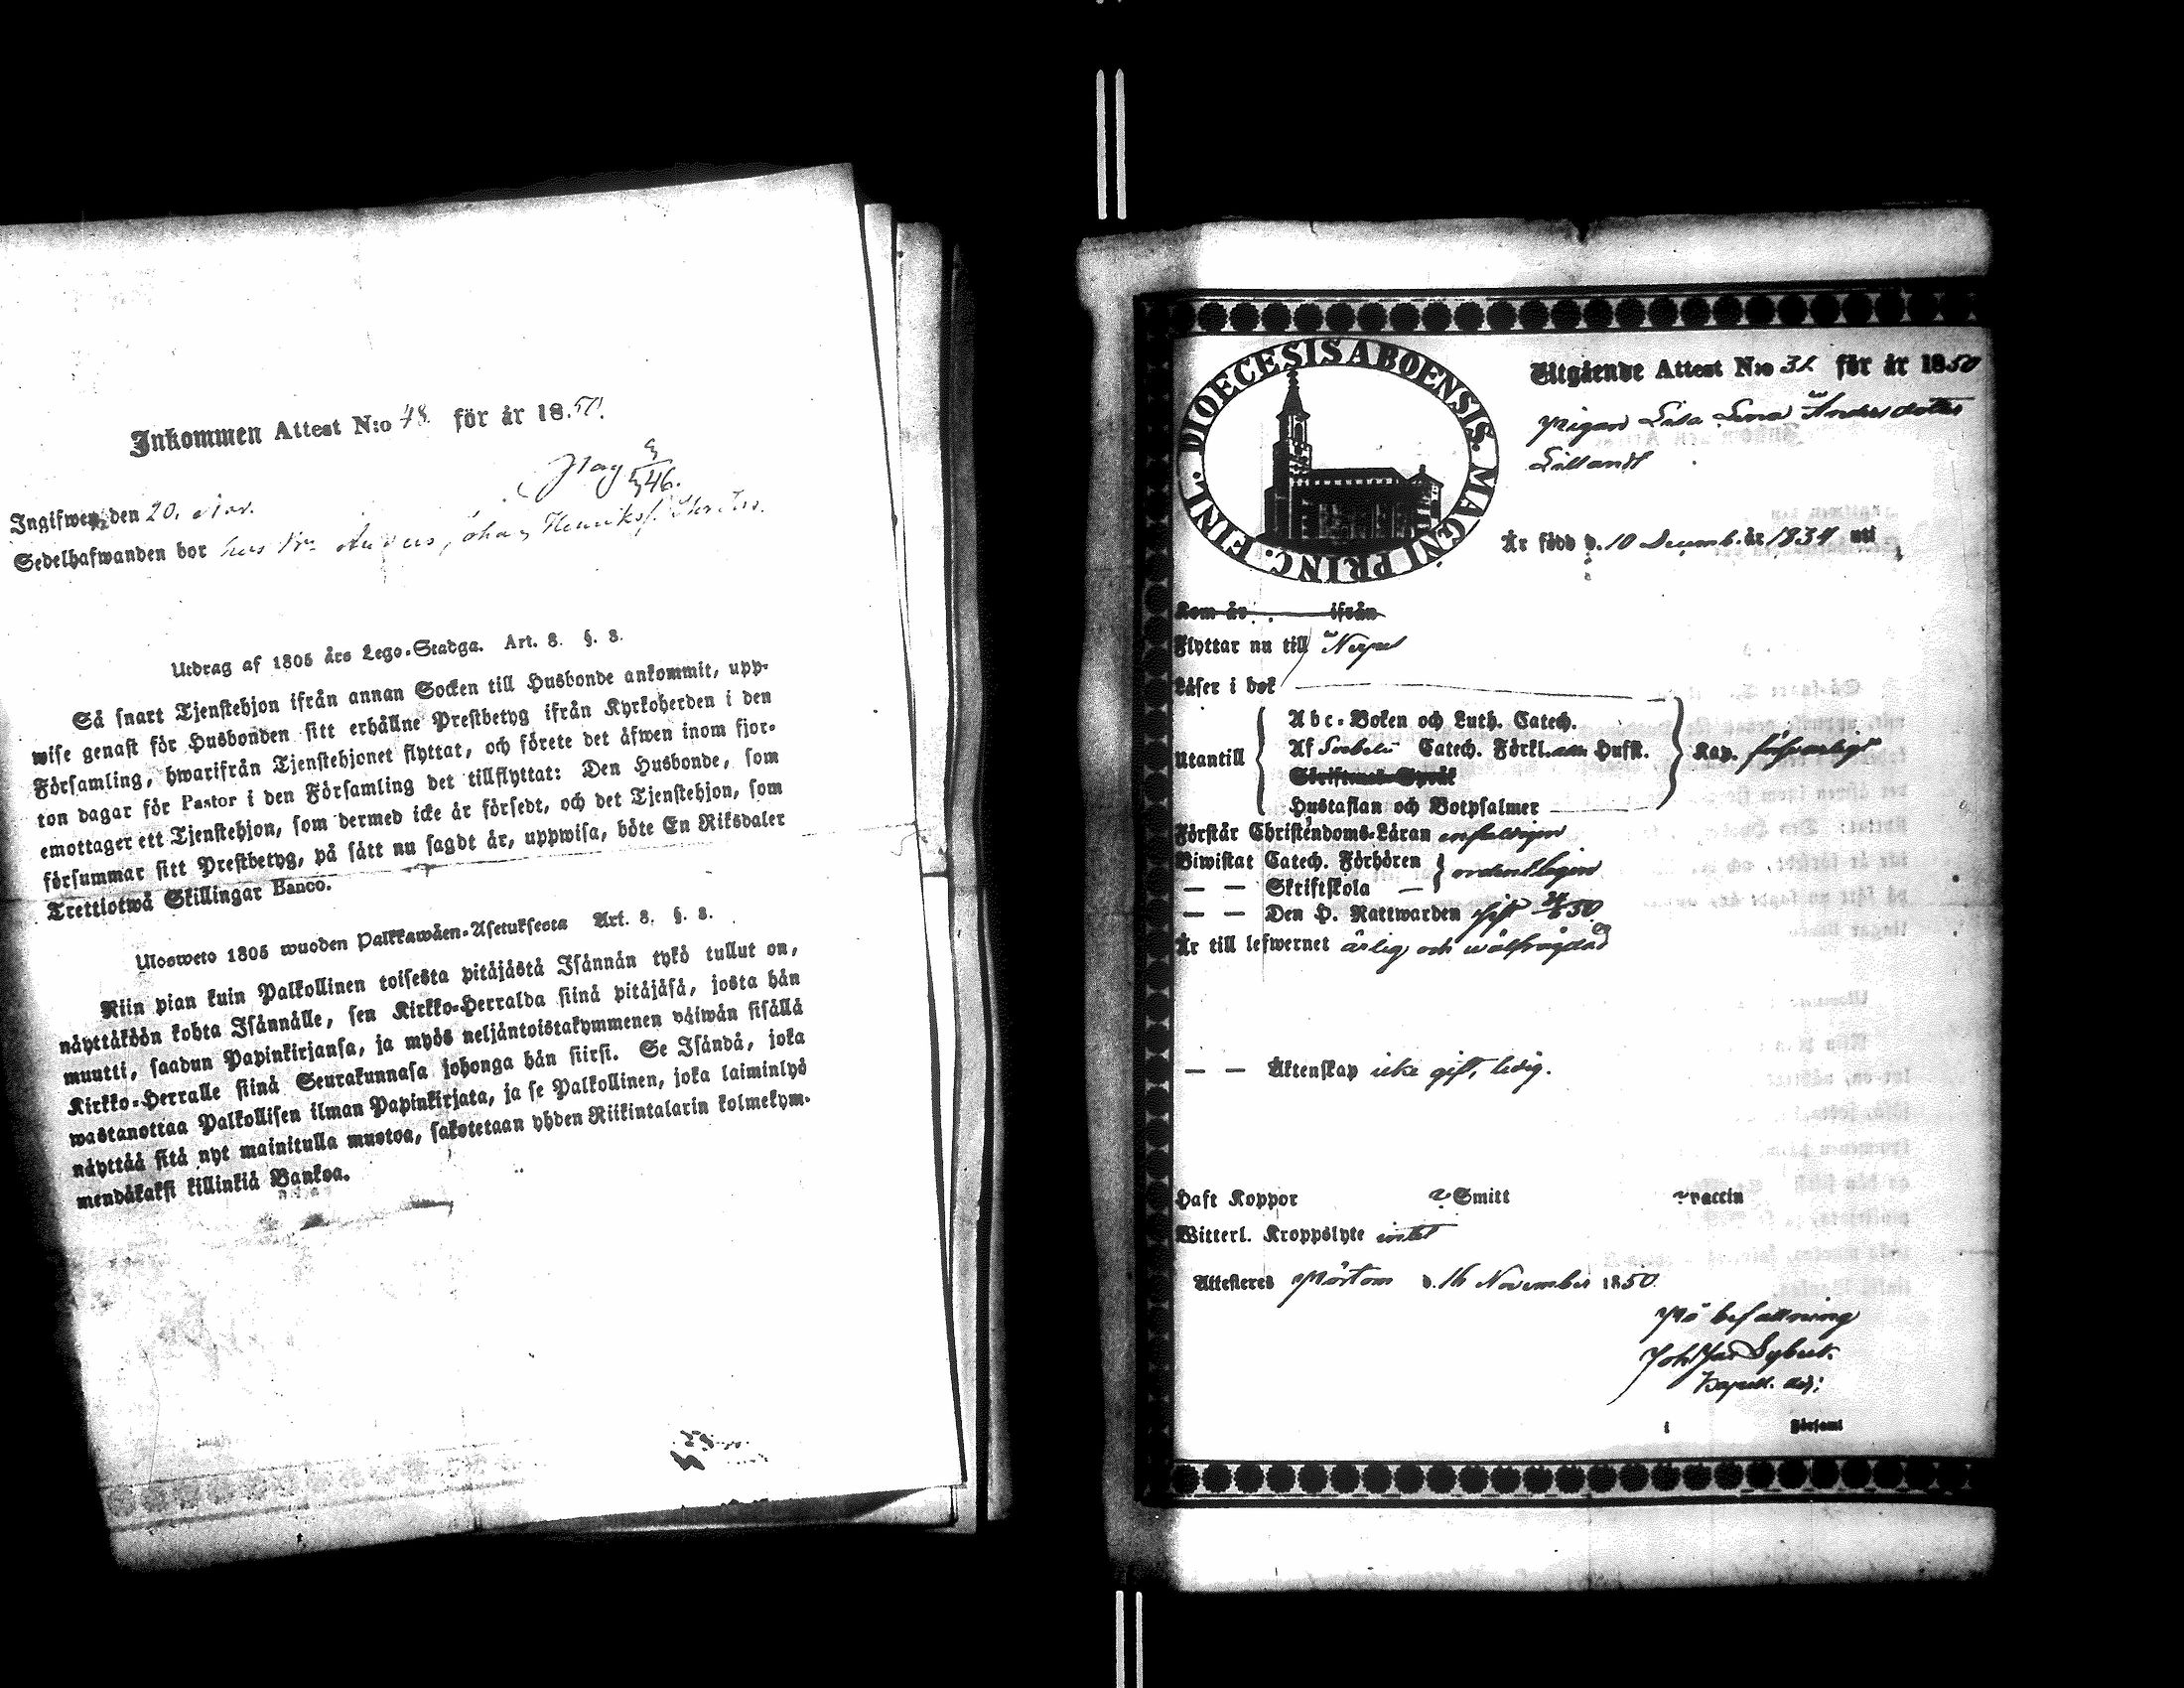 Inkommen Attest N:o 48. för år 1850.
Ingifwen den 20. Nov.
Sedelhafwanden bor hos
Utdrag af 1805 års Lego-Stadga. Art. 8. §. 8.
Så snart Tjenstehjon ifrån annan Socken till Husbonde ankommit, upp-
wise genast för Husbonden sitt erhållne Prestbetyg ifrån Kyrkoherden i den
Församling, hwarifrån Tjenstehjonet flyttat, och förete det äfwen inom fjor-
ton dagar för Pastor i den Församling det tillflyttat: Den Husbonde, som
emottager ett Tjenstehjon, som dermed icke är försedt, och det Tjenstehjon, som
försummar sitt Prestbetyg, på sätt nu sagdt är, uppwisa, böte En Riksdaler
Trettiotwå Skillingar Banco.
Ulosweto 1805 wuoden Palkkawäen-Asetuksesta Art. 8. §. 8.
Niin pian kuin Palkollinen toisesta pitäjästä Isännän tykö tullut on,
näyttäköön kohta Isännälle, sen Kirkko-Herralda siinä pitäjäsä, josta hän
muutti, saadun Papinkirjansa, ja myös neljäntoistakymmenen päiwän sisällä
Kirkko-Herralle siinä Seurakunnasa johonga hän siirsi. Se Isändä, joka
wastanottaa Palkollisen ilman Papinkirjata, ja se Palkollinen, joka laiminlyö
näyttää sitä nyt mainitulla muotoa, sakotetaan yhden Riikintalarin kolmekym-
mendäkaksi killinkiä Bankoa.
DIOECESIS ABOENSIS. MAGNI PRINC. FINL.
Utgående Attest N:o 31 för år 1850
Pigan Lisa Lena Andersdotter
Lillandt
Är född d. 10 Decemb. år 1834 uti
Kom år ifrån
Flyttar nu till Nerpes
Läser i bok
Abc-Boken och Luth. Catech.
Utantill Af Svebelii Catech. Förkl. Husfl. Kap. försvarligt
Skriftmål-Språk
Hustaflan och Botpsalmer
Förstår Christendoms-Läran enfaldigen
Biwistat Catech. Förhören ordentligen
— — Skriftskola —
— — Den H. Nattwarden sist 50
Är till lefwernet ärlig och wälfrägdad
— — Äktenskap icke gift, ledig.
Haft Koppor Smitt vaccin
Witterl. Kroppslyte intet
Attesteres Pörtom d. 16 November 1850.
På befallning
Kapell. adj:
i Församl